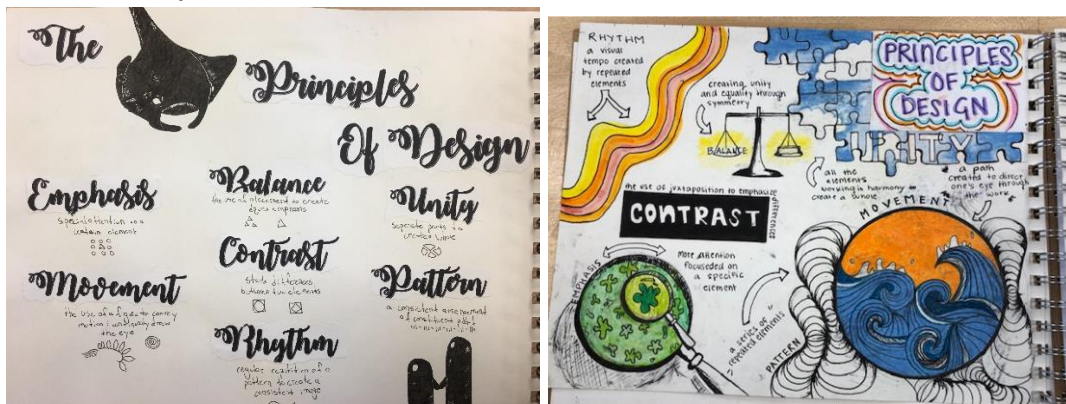 The
Principles
Of Design
Emphasis
special attention to a
certain element
Balance
the use of placement to create
equal emphasis
Unity
seperate parts to
created whole
Movement
the use of
motion
the eye
Contrast
stark differences
between two elements
Pattern
a consistent arrangement
of constituent parts
Rhythm
regular repitition of a
pattern to create a
consistent image
RHYTHM
a visual
tempo created
by repeated
elements
creating unity
and equality through
symmetry
BALANCE
PRINCIPLES
OF
DESIGN
UNITY
all the
elements
working in harmony to
create a whole
a path
created to direct
one's eye through
the work
MOVEMENT
the use of juxtaposition to emphasize
differences
CONTRAST
EMPHASIS
More Attention
focuseded on
a specific
element
a series of
repeated elements
PATTERN